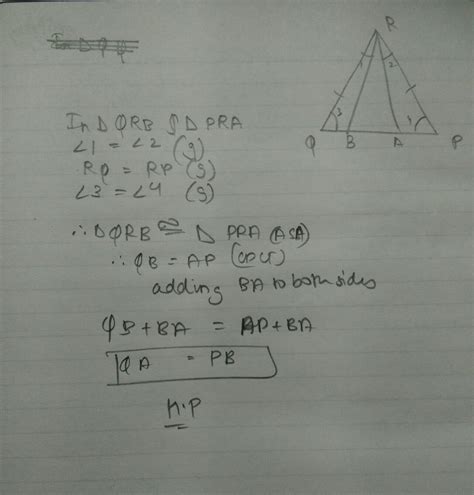 In Δ φ
R
1 2
3 4
Q B A P
In Δ QRB & Δ PRA
∠1 = ∠2 (g)
RQ = RP (g)
∠3 = ∠4 (g)
∴ Δ QRB ≅ Δ PRA (ASA)
∴ QB = AP (CPCT)
adding BA to both sides
QB + BA = AP + BA
QA = PB
H.P